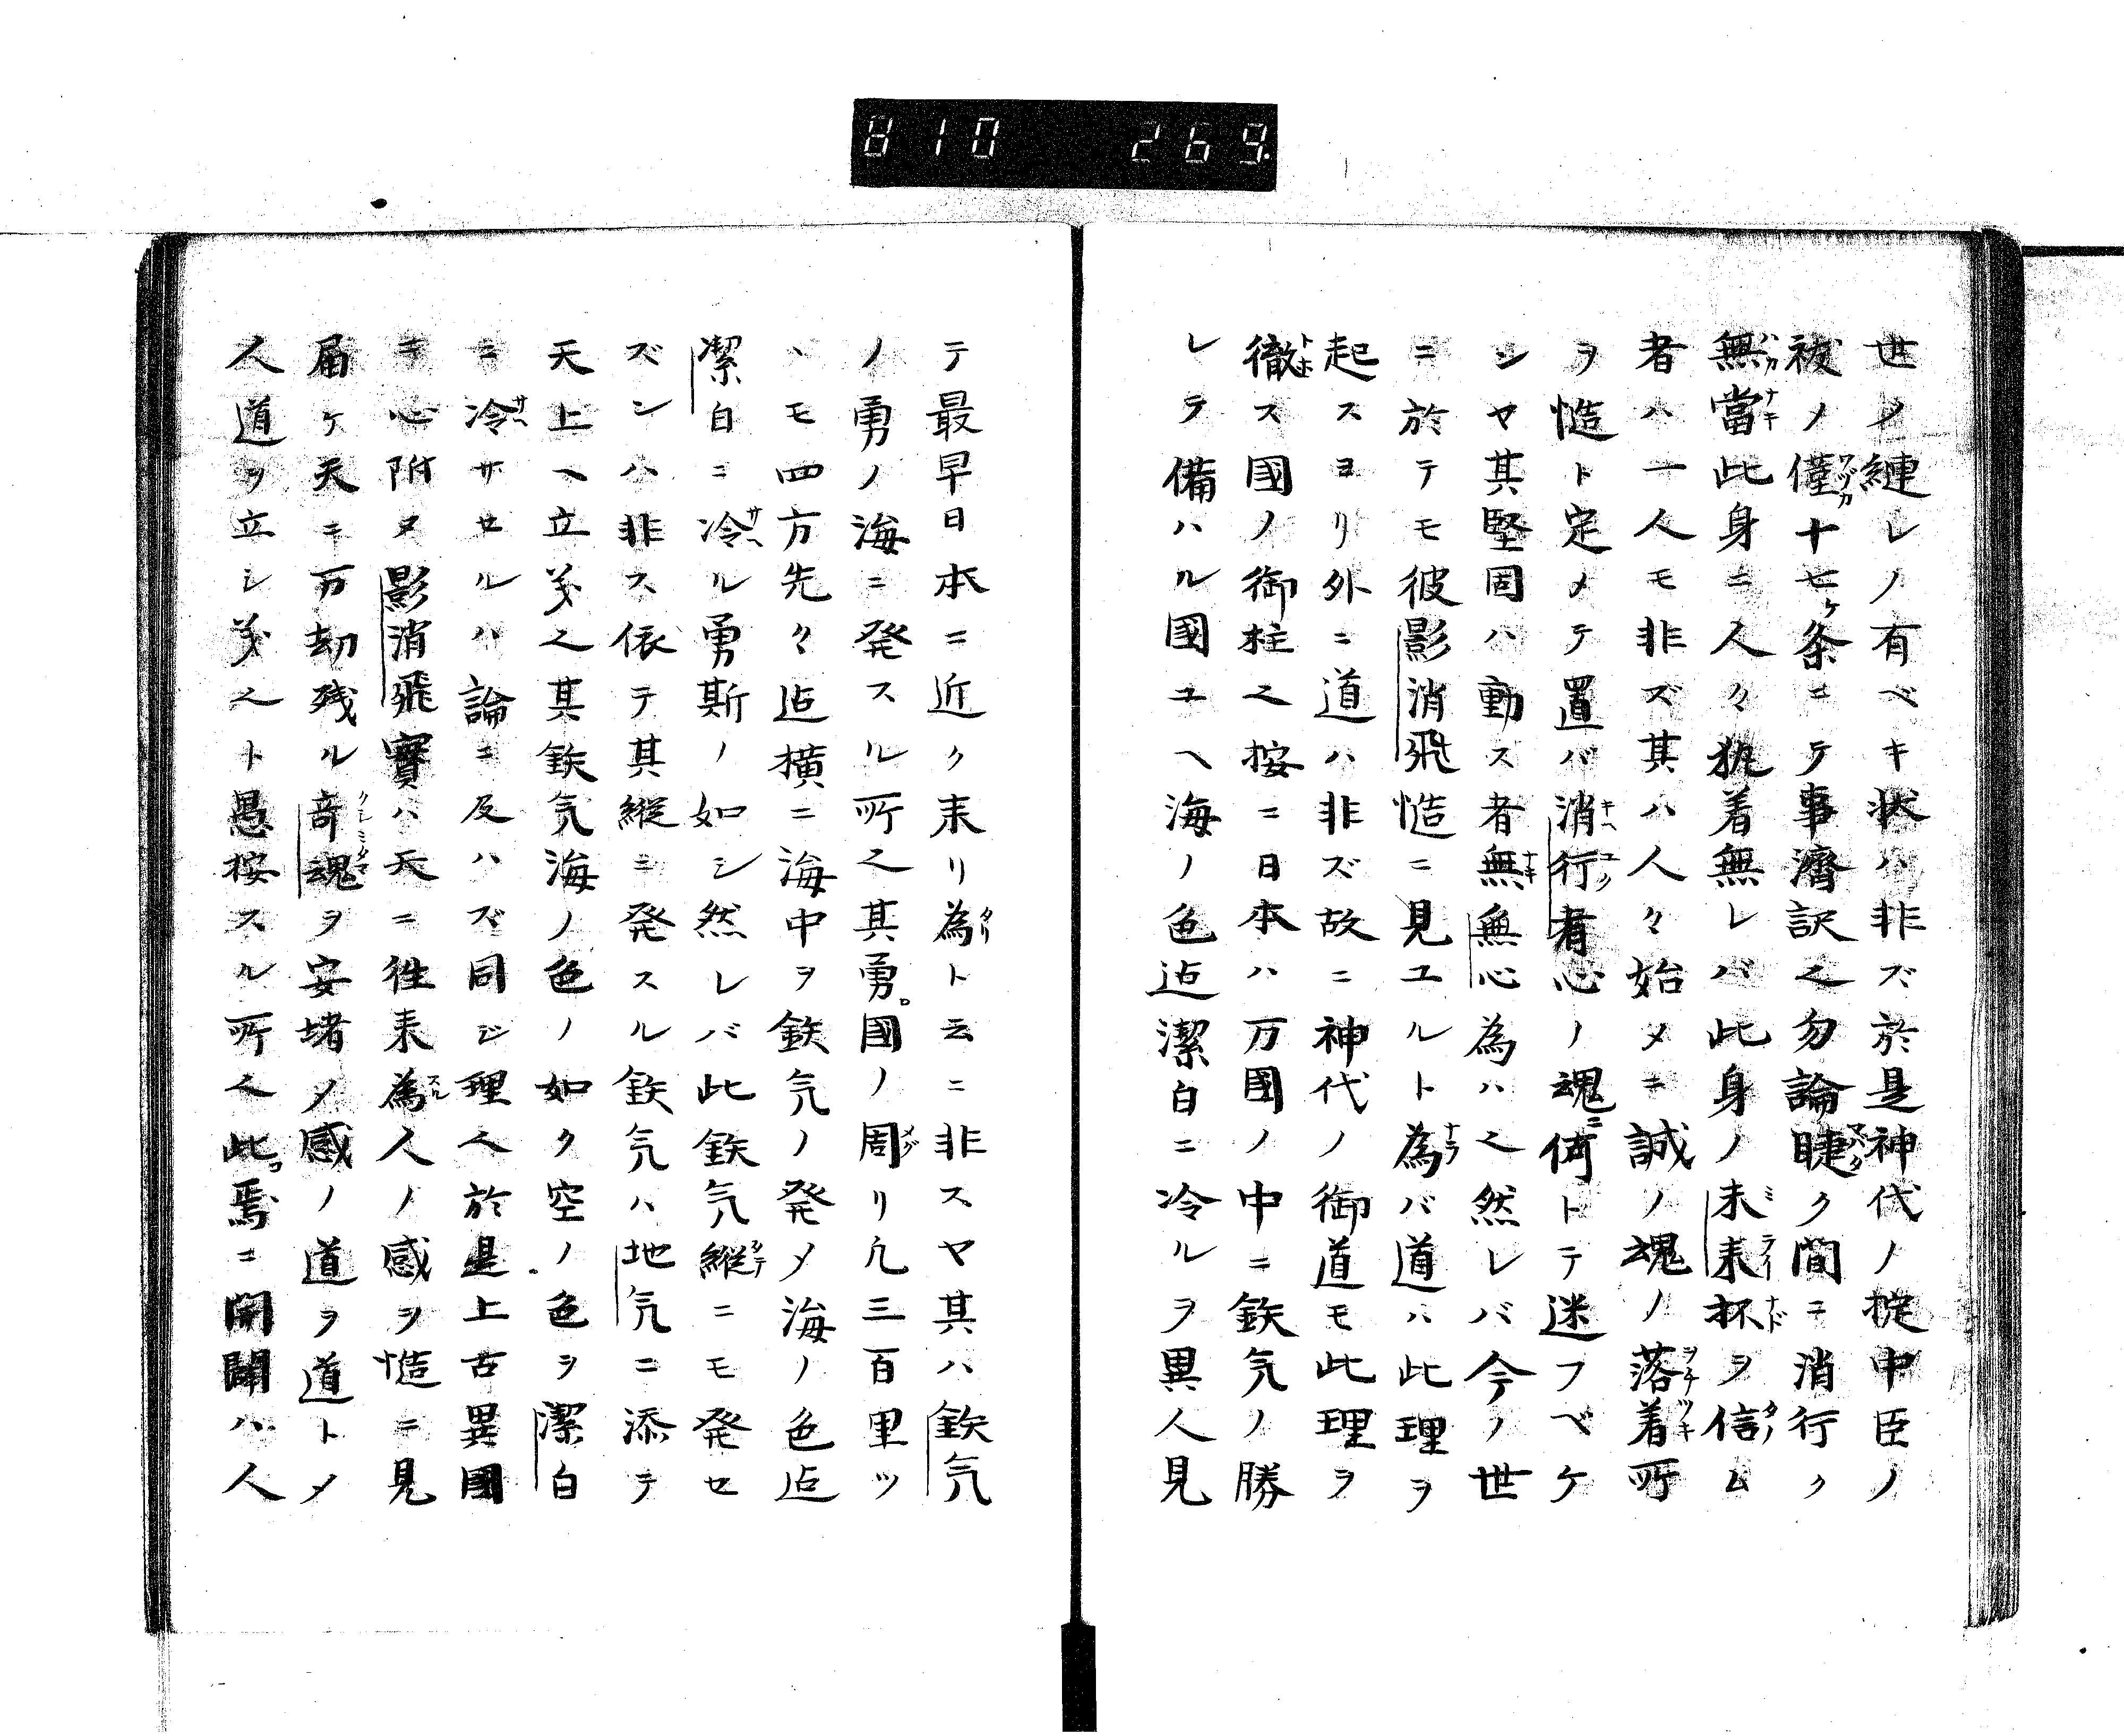 810 269.
世ノ縺レノ有ベキ状ハ非ズ於是神代ノ掟中臣ノ
祓ノ僅十七ケ条ニテ事濟訳之勿論睫ク間ニ消行ク
無當此身ニ人々執着無レバ此身ノ未来杯ヲ信ム
者ハ一人モ非ズ其ハ人々始メニ誠ノ魂ノ落着所
ヲ慥ト定メテ置バ消行者心ノ魂ニ何トテ迷フベケ
シヤ其堅固ハ動ス者無無心為ハ之然レバ今ノ世
ニ於テモ彼影消飛慥ニ見ユルト為バ道ハ此理ヲ
起スヨリ外ニ道ハ非ズ故ニ神代ノ御道モ此理ヲ
徹ス國ノ御柱之按ニ日本ハ万國ノ中ニ鉄気ノ勝
レテ備ハル國ユヘ海ノ色迠潔白ニ冷ルヲ異人見
テ最早日本ニ近ク来リ為ト云ニ非スヤ其ハ鉄気
ノ勇ノ海ニ発スル所之其勇。國ノ周リ凡三百里ツ
ヽモ四方先々迠横ニ海中ヲ鉄気ノ発メ海ノ色迠
潔白ニ冷ル勇斯ノ如シ然レバ此鉄気縦ニモ発セ
ズンハ非ス依テ其縦ニ発スル鉄気ハ地気ニ添テ
天上ヘ立義之其鉄気海ノ色ノ如ク空ノ色ヲ潔白
ニ冷サセルハ論ニ及ハズ同シ理之於是上古異國
ニ心附ヌ影消飛實ハ天ニ往来為人ノ感ヲ慥ニ見
届ケ天ニ万劫残ル竒魂ヲ安堵ノ感ノ道ヲ道トメ
人道ヲ立シ義之ト愚按スル所之此焉ニ開闢ハ人